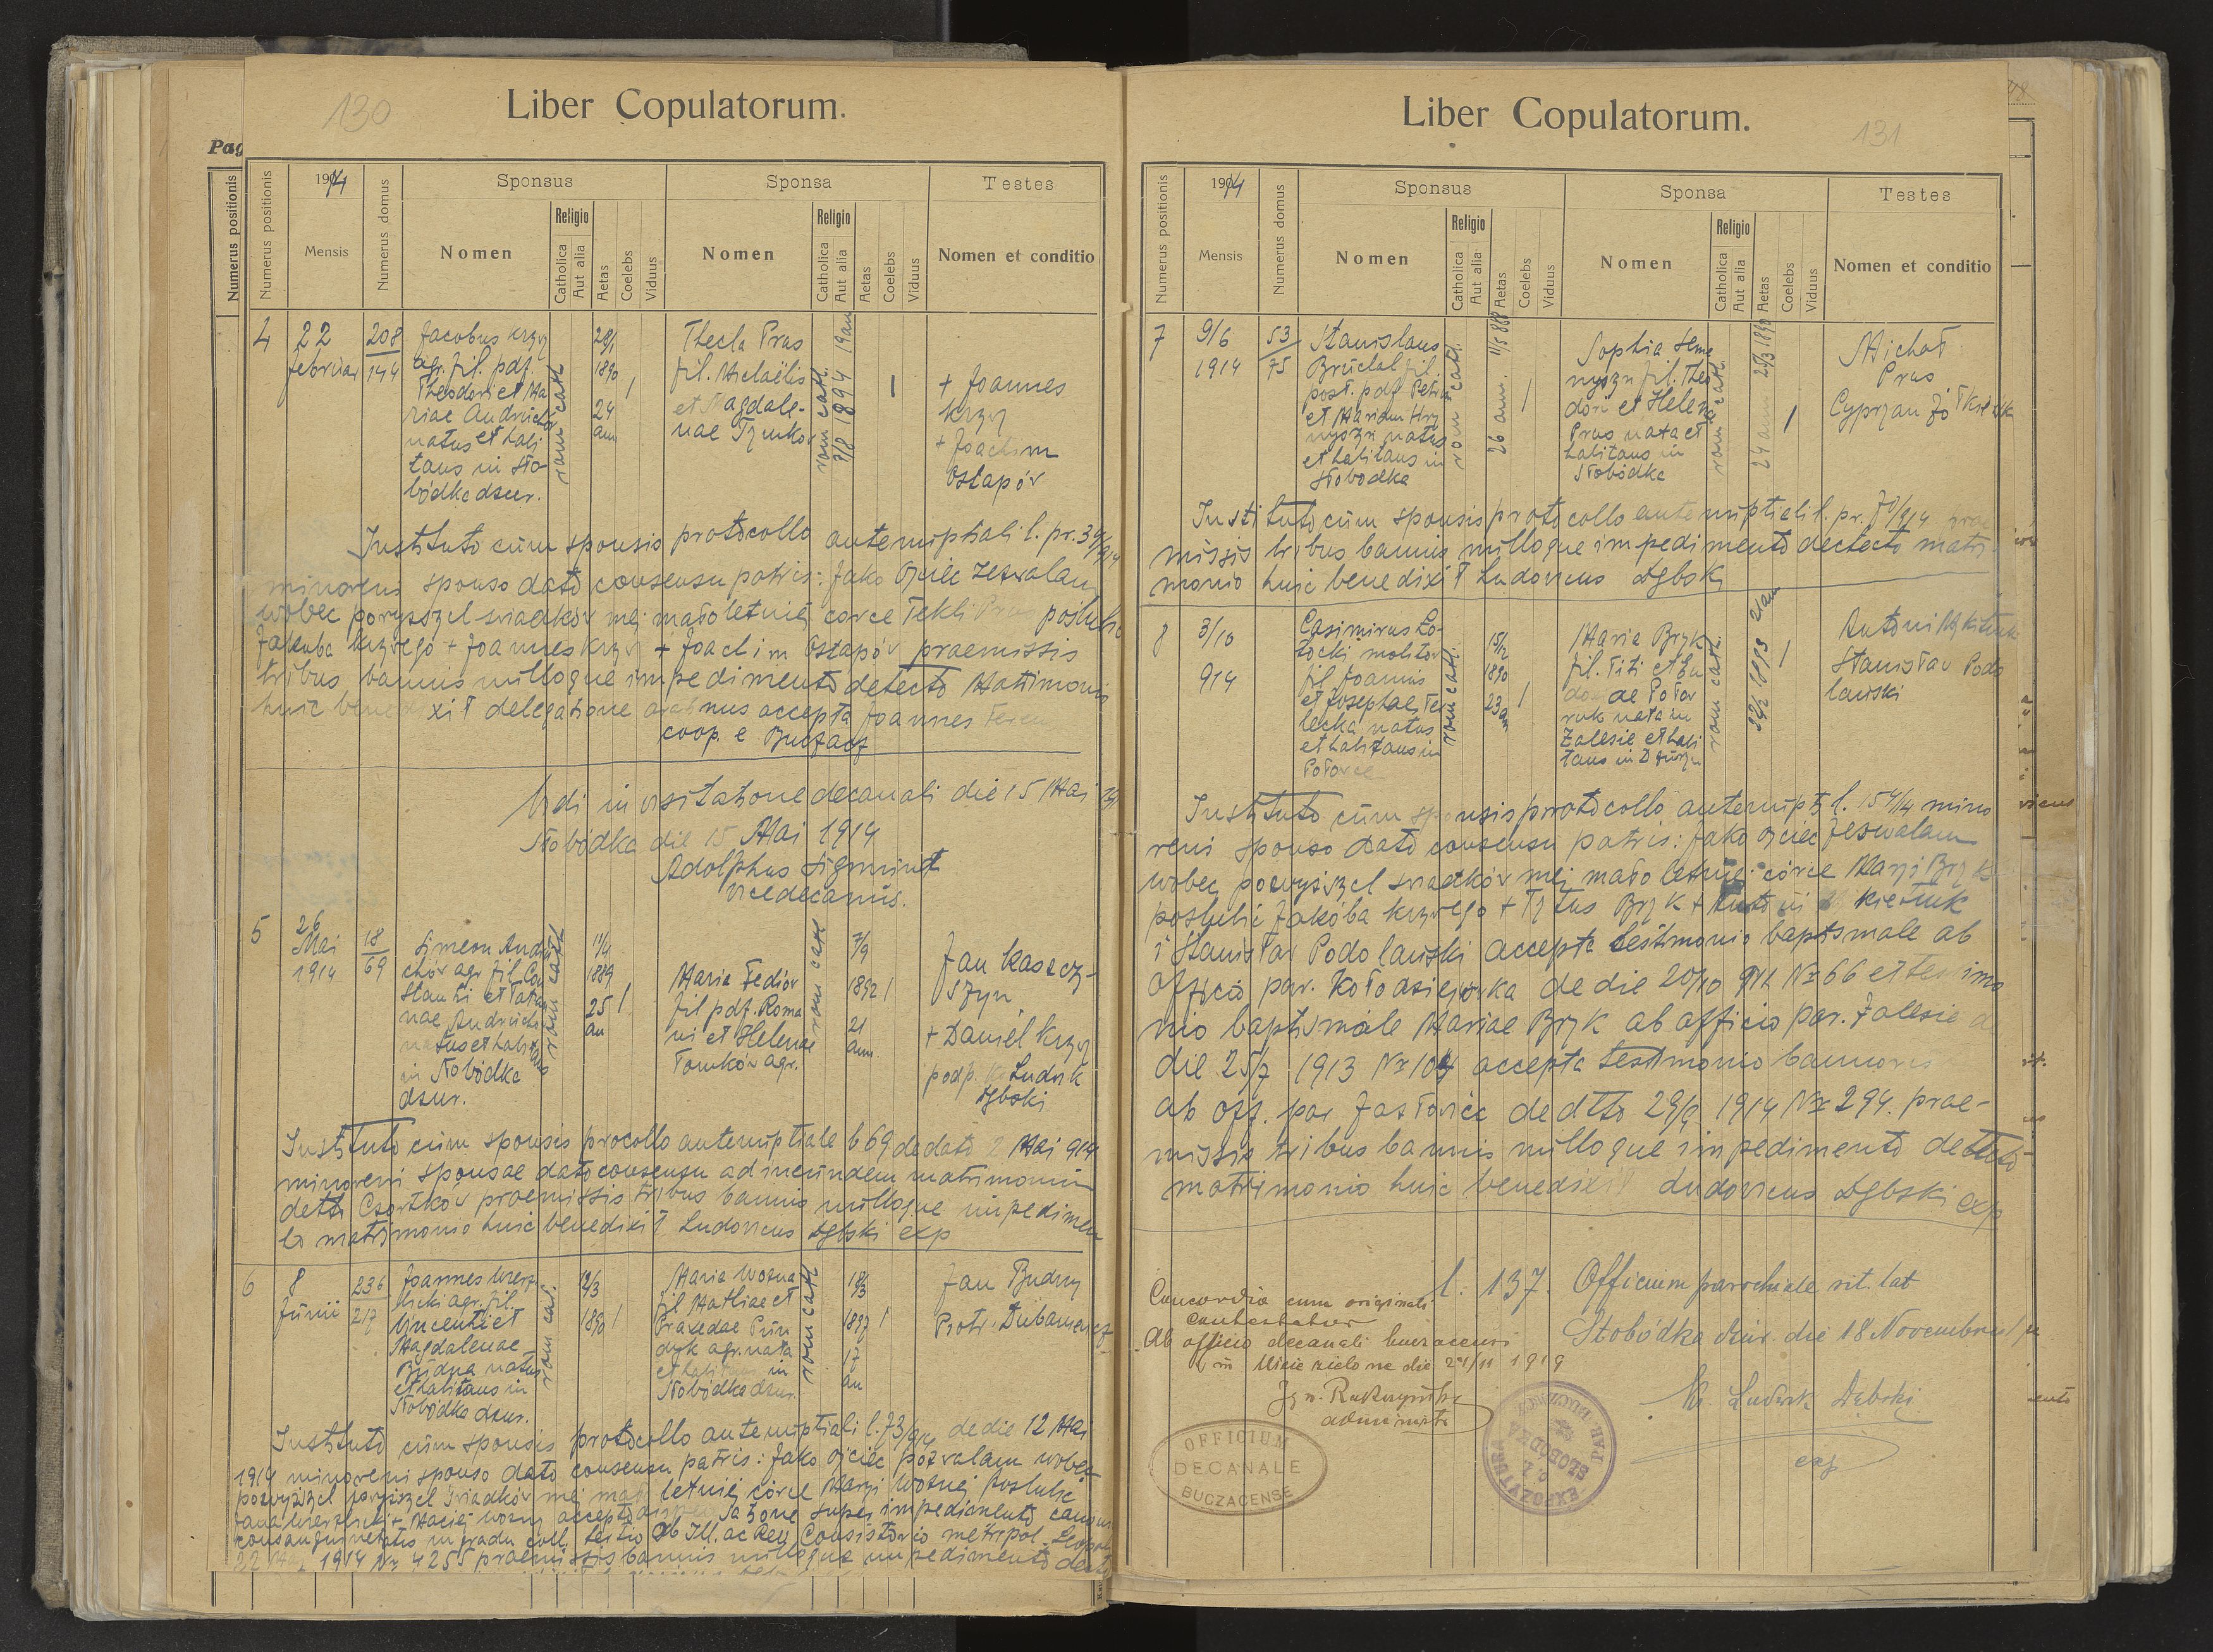 130
Liber Copulatorum.
Pag
Numerus positionis
Numerus positionis
1914
Mensis
Numerus domus
Sponsus
Nomen
Religio
Catholica
Aut alia
Aetas
Coelebs
Viduus
Sponsa
Nomen
Religio
Catholica
Aut alia
Aetas
Coelebs
Viduus
Testes
Nomen et conditio
4
22
Februar
208
144
Jacobus Krzyw
agr. fil. pdf.
Theodori et Ma
riae Andruchów
natus et habi
tans in Sło-
bódka dzur.
rom cath
28/1
1890
24
ann
1
Thecla Prus
fil. Michaëlis
et Magdale-
nae Tymków
rom cath.
1894 19 ann
1
+ Joannes
Krzyw
+ Joachim
Ostapów
Instituto cum sponsis protocollo antenuptiali l. pr. 34/914
minoreni sponso dato consensu patris: Jako Ojciec zezwalam
wobec powyższych świadków mej małoletniej córce Tekli Prus poślubić
Jakuba Krzywego + Joannes Krzyw + Joachim Ostapów praemissis
tribus bannis nulloque impedimento detecto Matrimonio
huic benedixit delegatione accepta Joannes
coop. e Buczacz
Vidi in visitatione decanali die 15 Mai
Słobódka die 15 Mai 1914
Adolphus Sigmund
vicedecanus.
5
26
Mai
1914
18
69
Simeon Andru
chów agr. fil. Con
stanti et Tatia
nae Andrucho
natus et habitans
in Słobódka
dzur.
rom cath
11/4
1889
25
an
1
Maria Fediów
fil pdf. Roma
ni et Helenae
Tomków agr.
rom cath
7/9
1892
21
ann.
1
Jan Kaszczy-
szyn
+ Daniel Krzyw
podp. Ludwik
Dębski
Instituto cum sponsis procollo antenuptiale l. 69 de dato 2 Mai 914
minoreni sponsae dato consensu ad ineundem matrimonium
detto Czortków praemissis tribus bannis nulloque impedimen
to matrimonio huic benedixit Ludovicus Dębski exp
6
8
Junii
236
217
Joannes Wierz
bicki agr. fil.
Vincenti et
Magdalenae
Budna natus
et habitans in
Słobódka dzur.
rom cat.
12/3
1890
1
Maria Wozna
fil Mathiae et
Praxedae Pun
dyk agr. nata
et habitans in
Słobódka dzur.
rom cath
18/3
1897
17
an
1
Jan Budny
Piotr Dubanewicz
Instituto cum sponsis protocollo antenuptiali l. 73/914 de die 12 Mai
1914 minoreni sponso dato consensu patris: Jako ojciec pozwalam wobec
powyższych świadków mej małoletniej córce Maryi Woznej poslubic
Jana Wierzbicki + Maciej Wozny accepta dispensatione super impedimento
consanguinetatis in gradu coll. tertio ab Ill. ac Rev. Consistorio metropol. Leopol
22 Mai 1914 Nr 4255 praemissis bannis nulloque impedimento
Liber Copulatorum.
131
Numerus positionis
1914
Mensis
Numerus domus
Sponsus
Nomen
Religio
Catholica
Aut alia
Aetas
Coelebs
Viduus
Sponsa
Nomen
Religio
Catholica
Aut alia
Aetas
Coelebs
Viduus
Testes
Nomen et conditio
7
9/6
1914
53
75
Stanislaus
Brüchal fil.
post. pdf Petri
et Mariam Hry
nyszyn natus
et habitans in
Słobodka
rom cath.
11/5 888
26 ann.
1
Sophia Seme
nyszyn fil. Theo
dori et Helena
Prus nata et
habitans in
Słobódka
rom cath.
24 ann
1
Michał
Prus
Cyprjan
Instituto cum sponsis protocollo antenuptiali l. pr. 71/914 prae
missis tribus bannis nulloque impedimento dectecto matri
monio huic benedixit Ludovicus Dębski
8
3/10
914
Casimirus Zo-
łocki molitor
fil Joannis
et Josephae Te
lecka natus
et habitans in
Potorce
rom cath.
15/12
1890
23 an
1
Maria Bryk
fil. Titi et Eu
doxiae Potor
ruk nata in
Zalesie et habi
tans in Dżuryn
rom cath.
1893 21 ann
1
Antoni Mykietiuk
Stanisław Podo
lański
Instituto cum sponsis protocollo antenupt l. 154/14 mino
reni sponso dato consensu patris: Jako ojciec zezwalam
wobec powyższych świadków mej małoletniej córce Maryi Bryk
poślubić Jakóba Krzywego + Tytus Bryk + Antoni Mykietiuk
i Stanisław Podolański accepta testimonio baptismale ab
officio par. Kołodziejówka de die 20/10 912 Nr 66 et testimo
nio baptismale Mariae Bryk ab officio par. Zalesie d
die 25/7 1913 Nr 104 accepta testimonio bannorum
ab off. par Jazłowiec de dtto 29/9 1914 Nr 294. prae-
missis tribus bannis nulloque impedimento detteto
matrimonio huic benedixit Ludovicus Dębski exp
l: 137. Officium parochiale rit. lat
Słobódka dzur. die 18 Novembris
Ks. Ludwik Dębski
exp
Concordia cum originali
contestatur
Ab officio decanali buczacensi
in Uście zielone die 21/11 1919
administr
OFFICIUM
DECANALE
BUCZACENSE
EXPOZYTURA
SŁOBÓDKA
PAR. BUCZACZ